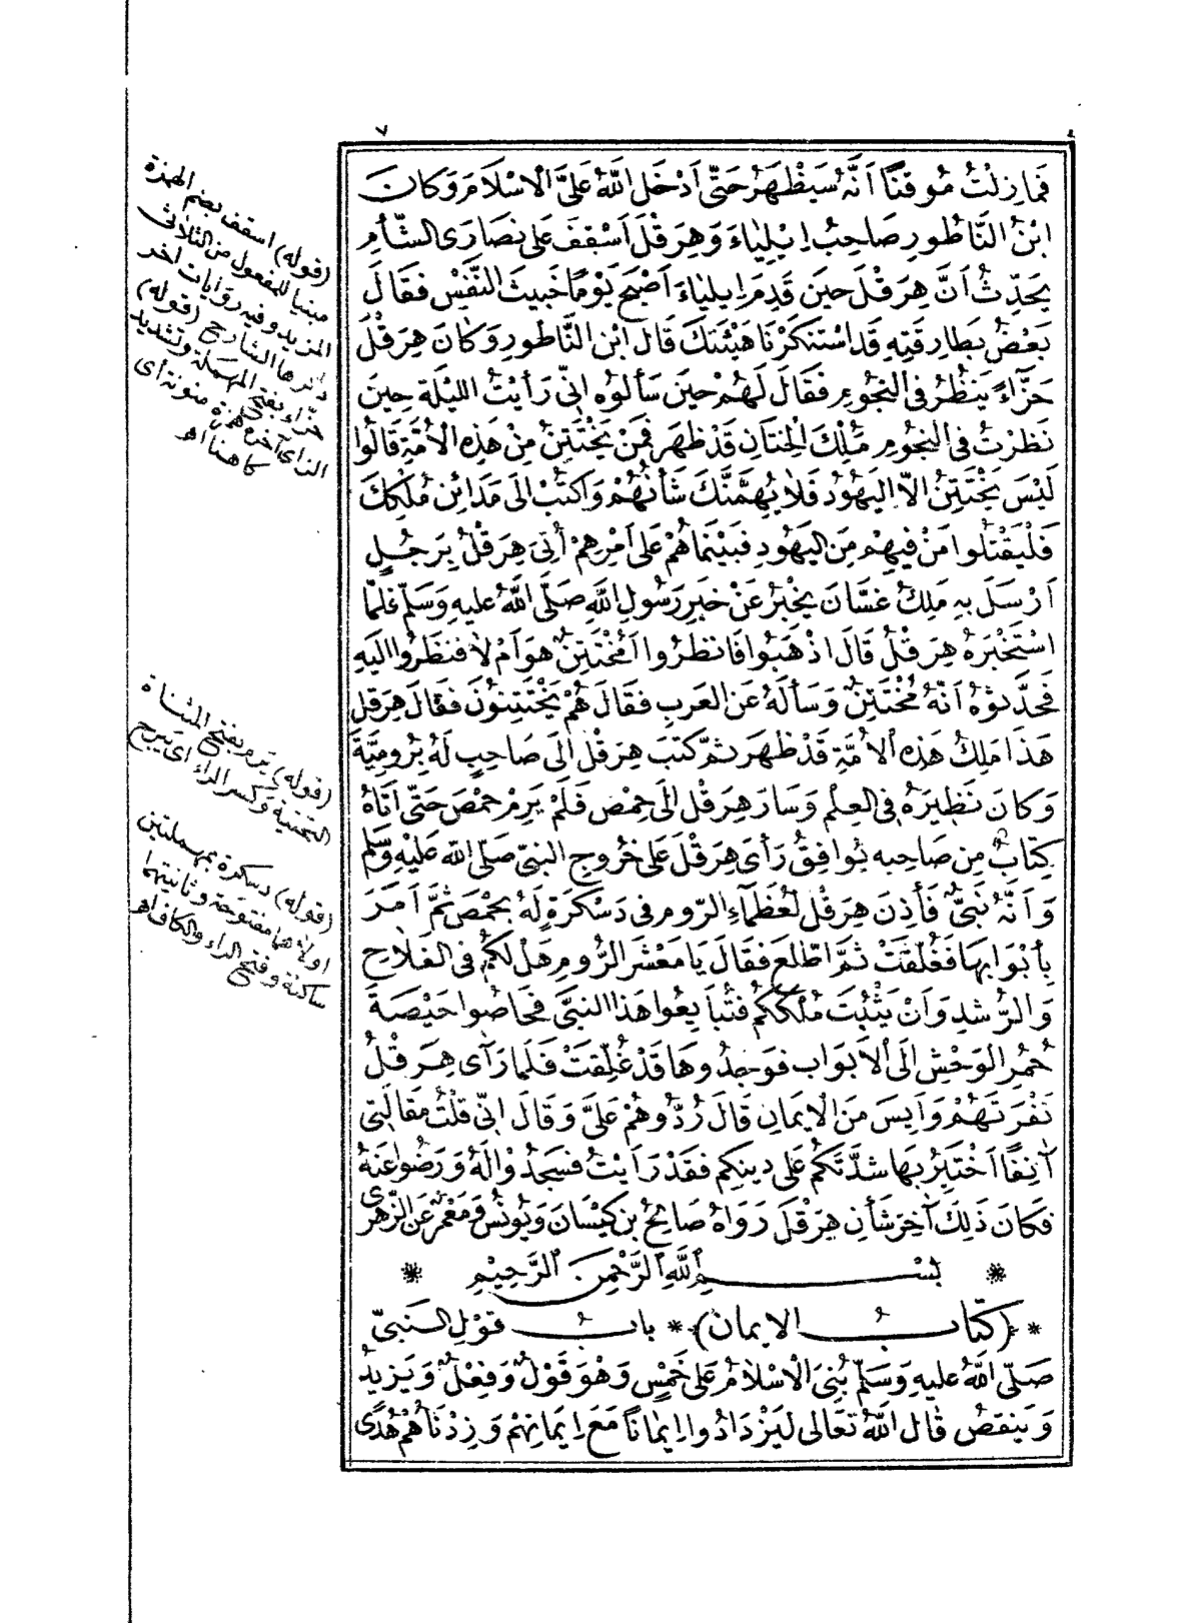 ٧
فَمَا زِلْتُ مُوقِنًا اَنَّهُ سَيَظْهَرُ حَتَّى اَدْخَلَ اللّٰهُ عَلَىَّ الْاِسْلَامَ وَكَانَ
ابْنُ النَّاطُورِ صَاحِبُ اِيلِيَاءَ وَهِرَقْلَ اُسْقِفَ عَلَى نَصَارَى الشَّأْمِ
يُحَدِّثُ اَنَّ هِرَقْلَ حِينَ قَدِمَ اِيلِيَاءَ اَصْبَحَ يَوْمًا خَبِيثَ النَّفْسِ فَقَالَ
بَعْضُ بَطَارِقَتِهِ قَدِ اسْتَنْكَرْنَا هَيْئَتَكَ قَالَ ابْنُ النَّاطُورِ وَكَانَ هِرَقْلُ
حَزَّاءً يَنْظُرُ فِى النُّجُومِ فَقَالَ لَهُمْ حِينَ سَأَلُوهُ اِنِّى رَأَيْتُ اللَّيْلَةَ حِينَ
نَظَرْتُ فِى النُّجُومِ مَلِكَ الْخِتَانِ قَدْ ظَهَرَ فَمَنْ يَخْتَتِنُ مِنْ هٰذِهِ الْاُمَّةِ قَالُوا
لَيْسَ يَخْتَتِنُ اِلَّا الْيَهُودُ فَلَا يُهِمَّنَّكَ شَأْنُهُمْ وَاكْتُبْ اِلَى مَدَائِنِ مُلْكِكَ
فَلْيَقْتُلُوا مَنْ فِيهِمْ مِنَ الْيَهُودِ فَبَيْنَمَا هُمْ عَلَى اَمْرِهِمْ اُتِىَ هِرَقْلُ بِرَجُلٍ
اَرْسَلَ بِهِ مَلِكُ غَسَّانَ يُخْبِرُ عَنْ خَبَرِ رَسُولِ اللّٰهِ صَلَّى اللّٰهُ عَلَيْهِ وَسَلَّمَ فَلَمَّا
اسْتَخْبَرَهُ هِرَقْلُ قَالَ اذْهَبُوا فَانْظُرُوا اَمُخْتَتِنٌ هُوَ اَمْ لَا فَنَظَرُوا اِلَيْهِ
فَحَدَّثُوهُ اَنَّهُ مُخْتَتِنٌ وَسَأَلَهُ عَنِ الْعَرَبِ فَقَالَ هُمْ يَخْتَتِنُونَ فَقَالَ هِرَقْلُ
هَذَا مَلِكُ هٰذِهِ الْاُمَّةِ قَدْ ظَهَرَ ثُمَّ كَتَبَ هِرَقْلُ اِلَى صَاحِبٍ لَهُ بِرُومِيَّةَ
وَكَانَ نَظِيرَهُ فِى الْعِلْمِ وَسَارَ هِرَقْلُ اِلَى حِمْصَ فَلَمْ يَرِمْ حِمْصَ حَتَّى اَتَاهُ
كِتَابٌ مِنْ صَاحِبِهِ يُوَافِقُ رَأْىَ هِرَقْلَ عَلَى خُرُوجِ النَّبِىِّ صَلَّى اللّٰهُ عَلَيْهِ وَسَلَّمَ
وَاَنَّهُ نَبِىٌّ فَأَذِنَ هِرَقْلُ لِعُظَمَاءِ الرُّومِ فِى دَسْكَرَةٍ لَهُ بِحِمْصَ ثُمَّ اَمَرَ
بِأَبْوَابِهَا فَغُلِّقَتْ ثُمَّ اطَّلَعَ فَقَالَ يَا مَعْشَرَ الرُّومِ هَلْ لَكُمْ فِى الْفَلَاحِ
وَالرُّشْدِ وَاَنْ يَثْبُتَ مُلْكُكُمْ فَتُبَايِعُوا هٰذَا النَّبِىَّ فَحَاصُوا حَيْصَةَ
حُمُرِ الْوَحْشِ اِلَى الْاَبْوَابِ فَوَجَدُوهَا قَدْ غُلِّقَتْ فَلَمَّا رَاَى هِرَقْلُ
نَفْرَتَهُمْ وَاَيِسَ مِنَ الْاِيمَانِ قَالَ رُدُّوهُمْ عَلَىَّ وَقَالَ اِنِّى قُلْتُ مَقَالَتِى
آنِفًا اَخْتَبِرُ بِهَا شِدَّتَكُمْ عَلَى دِينِكُمْ فَقَدْ رَأَيْتُ فَسَجَدُوْا لَهُ وَرَضُوا عَنْهُ
فَكَانَ ذَلِكَ آخِرَ شَأْنِ هِرَقْلَ رَوَاهُ صَالِحُ بْنُ كَيْسَانَ وَيُونُسُ وَمَعْمَرٌ عَنِ الزُّهْرِىِّ
بِسْمِ اللّٰهِ الرَّحْمٰنِ الرَّحِيمِ
(كِتَابُ الْاِيمَانِ) بَابُ قَوْلِ النَّبِىِّ
صَلَّى اللّٰهُ عَلَيْهِ وَسَلَّمَ بُنِىَ الْاِسْلَامُ عَلَى خَمْسٍ وَهُوَ قَوْلٌ وَفِعْلٌ وَيَزِيدُ
وَيَنْقُصُ قَالَ اللّٰهُ تَعَالَى لِيَزْدَادُوا اِيمَانًا مَعَ اِيمَانِهِمْ وَزِدْنَاهُمْ هُدًى
(قوله) اسقف بضم الهمزة
مبنيا للمفعول من الثلاثى
المزيد وفيه روايات اخر
ذكرها الشارح (قوله)
حزّاء بفتح المهملة وتشديد
الزاى آخره همزة منونة اى
كاهنا اهـ
(قوله) يَرِم بفتح المثناة
التحتية وكسر الراء اى يبرح
(قوله) دسكرة بمهملتين
اولاهما مفتوحة وثانيتهما
ساكنة وفتح الراء والكاف اهـ